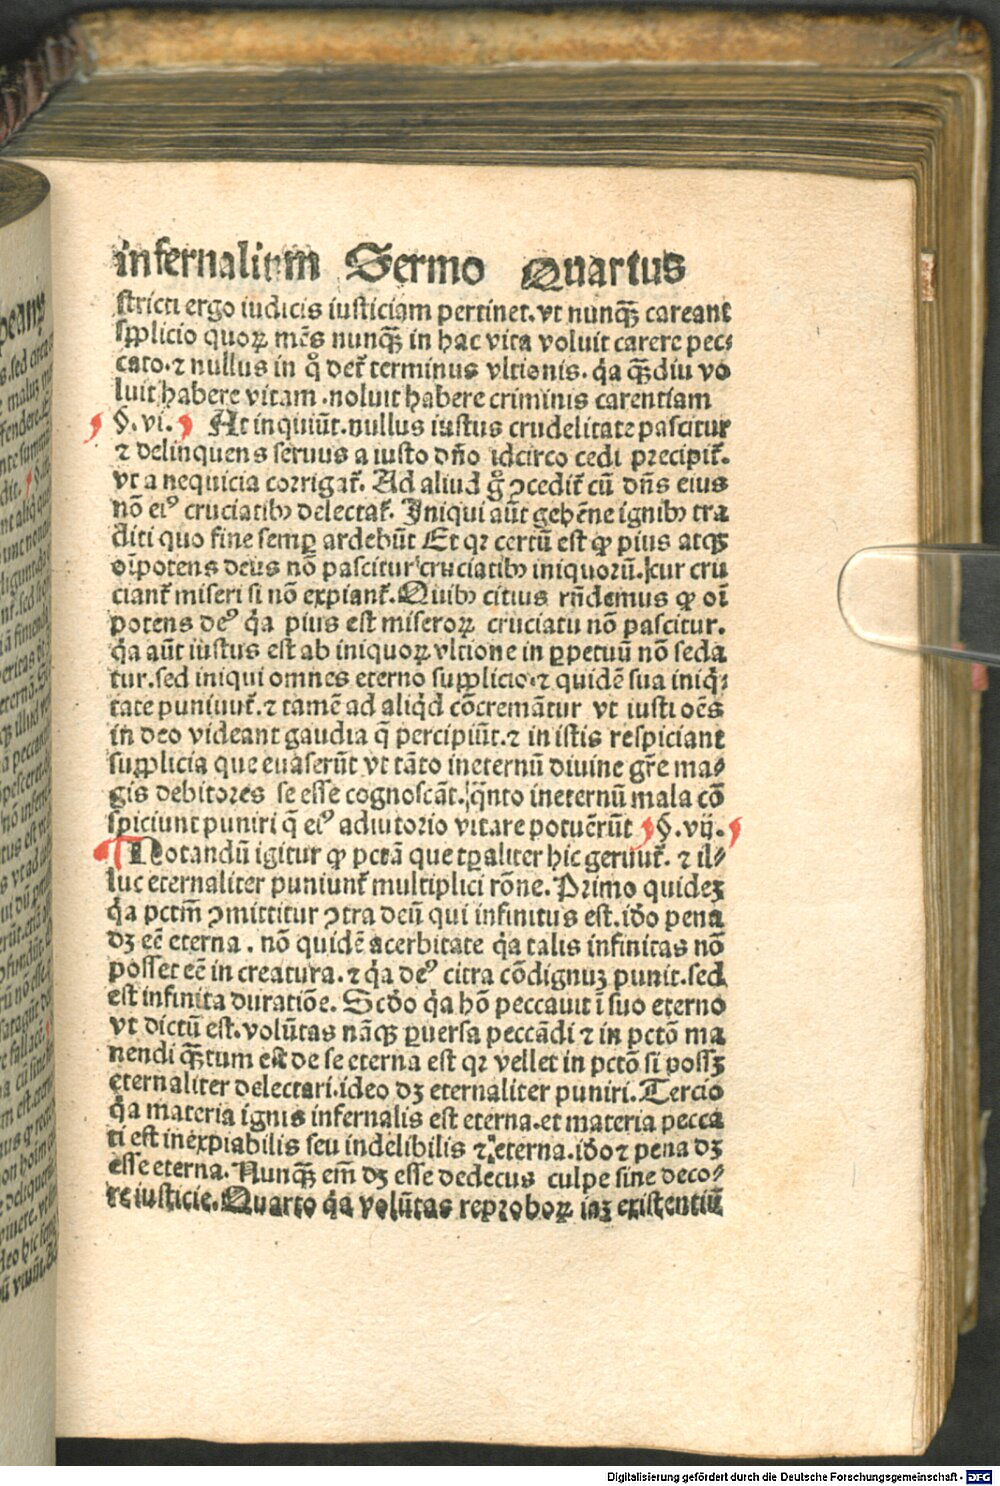 infernalium Sermo Quartus
stricti ergo iudicis iusticiam pertinet. vt nunqꝫ careant
sꝓplicio quoꝝ mēs nunqꝫ in hac vita voluit carere pec⸗
cato. ⁊ nullus in q̊ det᷑ terminus vltionis. q̇a qꝫdiu vo
luit habere vitam .noluit habere criminis carentiam
§. vi. At inquiūt. nullus iustus crudelitate pascitur
⁊ delinquens seruus a iusto dño idcirco cedi precipit᷑.
vt a nequicia corrigat᷑. Ad aliud g̊ ꝯcedit᷑ cū dn̄s eius
nō eiꝰ cruciatibꝫ delectat᷑. Iniqui aūt gehēne ignibꝫ tra
diti quo fine semꝑ ardebūt Et qꝛ certū est ꝙ pius atqꝫ
oīpotens deus nō pascitur cruciatibꝫ iniquorū. cur cru
ciant᷑ miseri si nō expiant᷑. Quibꝫ citius rn̄demus ꝙ oī
potens deꝰ q̇a pius est miseroꝝ cruciatu nō pascitur.
q̇a aūt iustus est ab iniquoꝝ vltione in ꝑpetuū nō seda
tur. sed iniqui omnes eterno suꝓplicio. ⁊ quidē sua iniq̇⸗
tate puniuut᷑. ⁊ tamē ad aliq̇d cōcremātur vt iusti oēs
in deo videant gaudia q̄ percipiūt. ⁊ in istis respiciant
suꝓplicia que euaserūt vt tāto ineternū diuine gr̄e ma⸗
gis debitores se esse cognoscāt. q̄nto ineternū mala cō
spiciunt puniri q̄ eiꝰ adiutorio vitare potuērūt §. vij.
Notandū igitur ꝙ pctā que tꝑaliter hic geruut᷑. ⁊ il⸗
luc eternaliter puniunt᷑ multiplici rōne. Primo quideꝫ
q̇a pctm̄ ꝯmittitur ꝯtra deū qui infinitus est. iđo pena
dꝫ eē eterna. nō quidē acerbitate q̇a talis infinitas nō
posset eē in creatura. ⁊ q̇a deꝰ citra cōdignuꝫ punit. sed
est infinita duratiōe. Scđo q̇a hō peccauit ī suo eterno
vt dictū est. volūtas nāqꝫ ꝑuersa peccādi ⁊ in pctō ma
nendi qꝫtum est de se eterna est qꝛ vellet in pctō si possꝫ
eternaliter delectari. ideo dꝫ eternaliter puniri. Tercio
q̇a materia ignis infernalis est eterna. et materia pecca
ti est inexpiabilis seu indelibilis ⁊ eterna. iđo ⁊ pena dꝫ
esse eterna. Nunqꝫ em̄ dꝫ esse dedecus culpe sine deco⸗
re iusticie. Quarto q̇a volūtas reproboꝝ iaꝫ existentiū
Digitalisierung gefördert durch die Deutsche Forschungsgemeinschaft - DFG